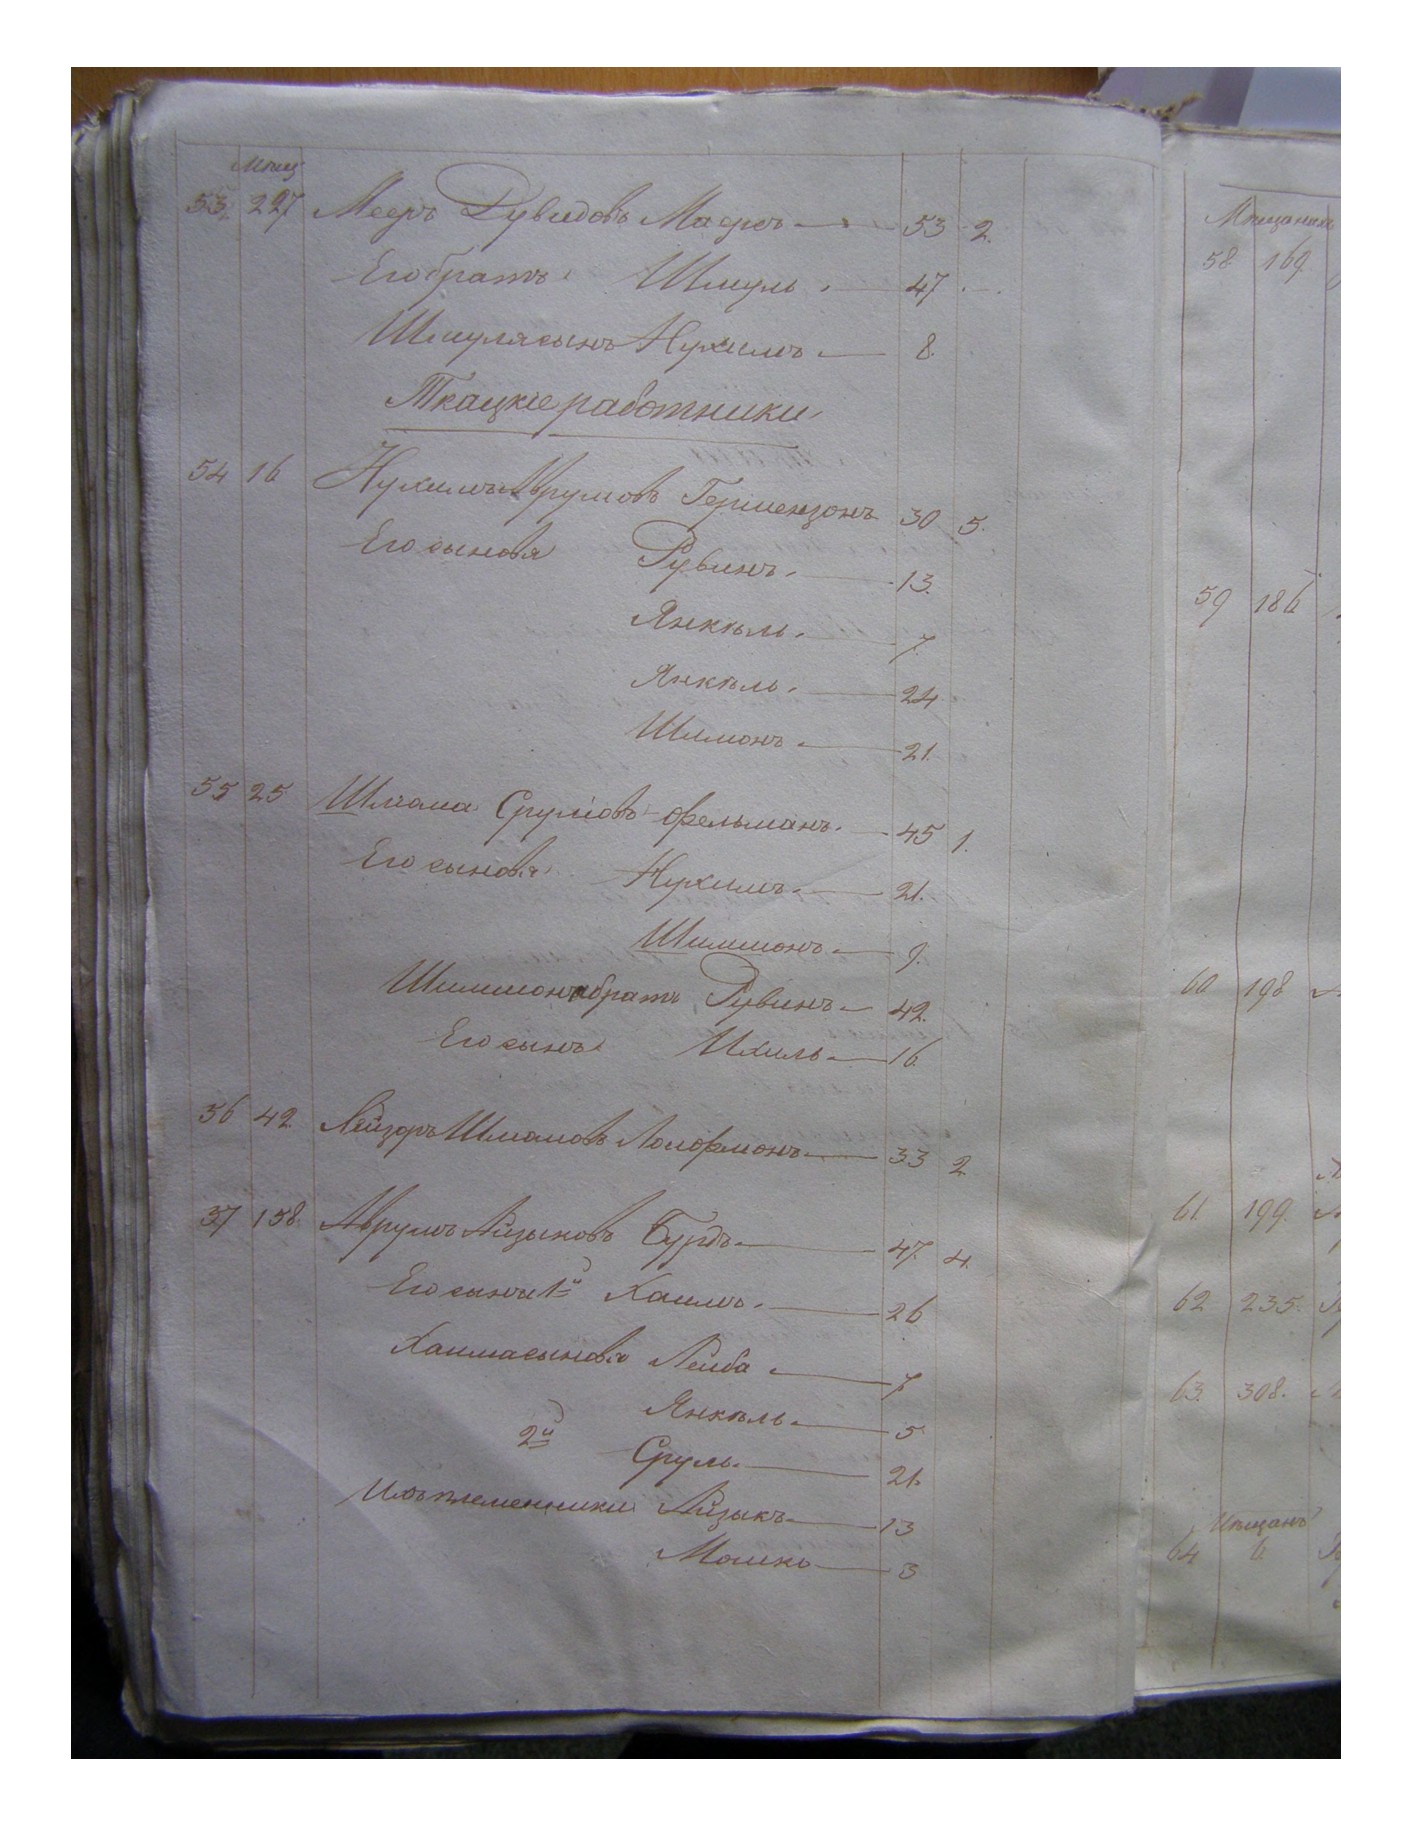 Мѣщ
53. 227 Меер Рувинов Маеръ 53 2.
Его братъ Шмуль 47 -
Шмуля сынъ Нухимъ 8.
Ткацкіе работники
54 16 Нухимъ Аврумовъ Гершензонъ 30 5.
Его сыновя Рувинъ 13.
Янкель 7.
Янкель 24
Шимонъ 21.
55 25 Шлиома Срулiовъ Фельманъ 45 1.
Его сыновя Нухимъ 21.
Шимшонъ 9.
Шимшона братъ Рувинъ 42.
Его сынъ Ихиль 16.
56 42. Лейзоръ Шмаиовъ 33 2
57 158. Аврумъ Айзыковъ Бурдъ 47. 4.
Его сыни 1й Хаимъ 26
Хаима сыновя Лейба 7
Янкель 5
2й Сруль 21.
Ихъ племенники Айзыкъ 13
Мошко 3
Мѣщанъ
58 169.
59 186
60 198
61. 199.
62 235.
63. 308.
Мѣщанъ
64 6.